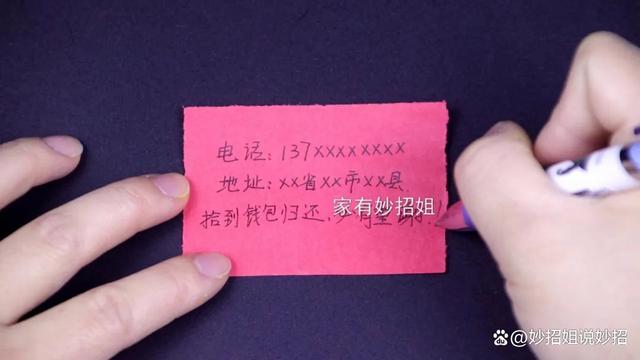 电话:137xxxxxxxx
地址:xx省xx市xx县.
拾到钱包归还,必有重谢!
家有妙招姐
@妙招姐说妙招